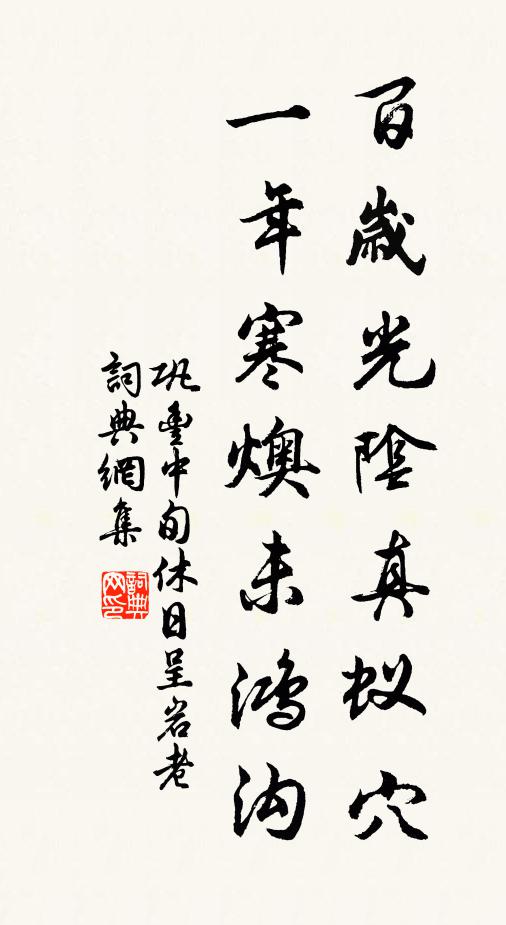 百歲光陰真蚁穴
一年寒燠未鴻沟
巩豐中旬休日呈岩老
詞典網集
詞典网印